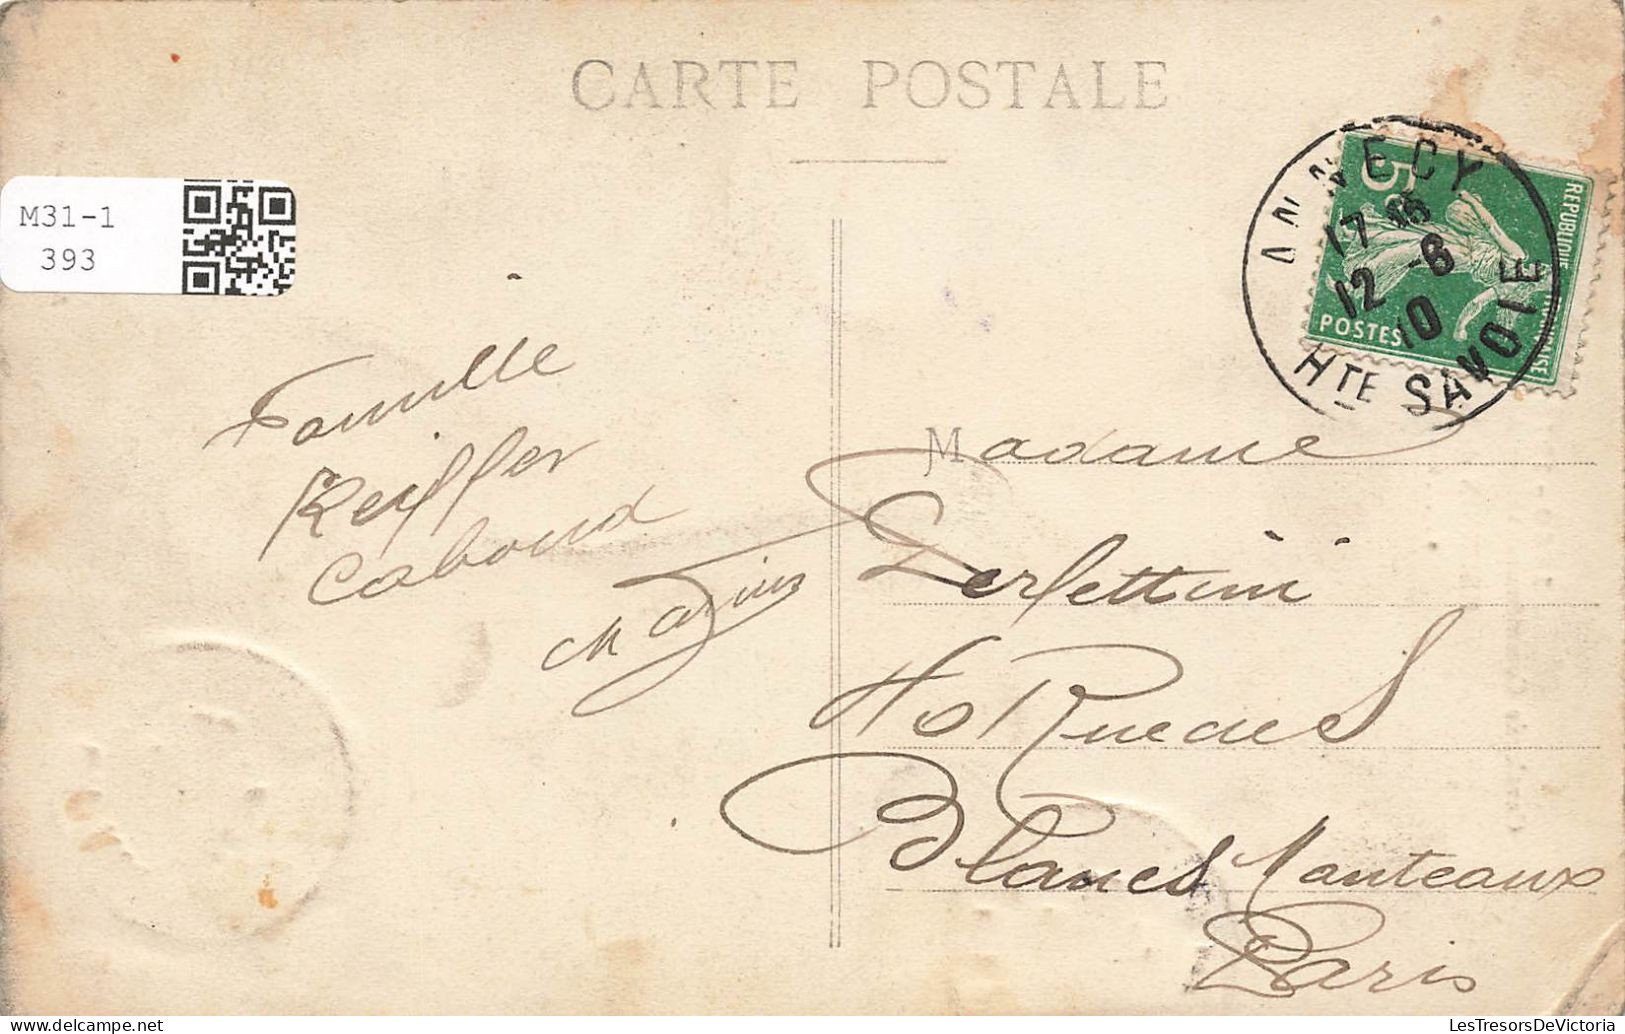 CARTE POSTALE
M31-1
393
ANNECY
17 15
12 -6
10
HTE SAVOIE
5c
REPUBLIQUE FRANÇAISE
POSTES
Famille
Keiffer
Caboud
Marius
Madame
Derlettini
40 Rue des
Blancs Manteaux
Paris
LesTresorsDeVictoria